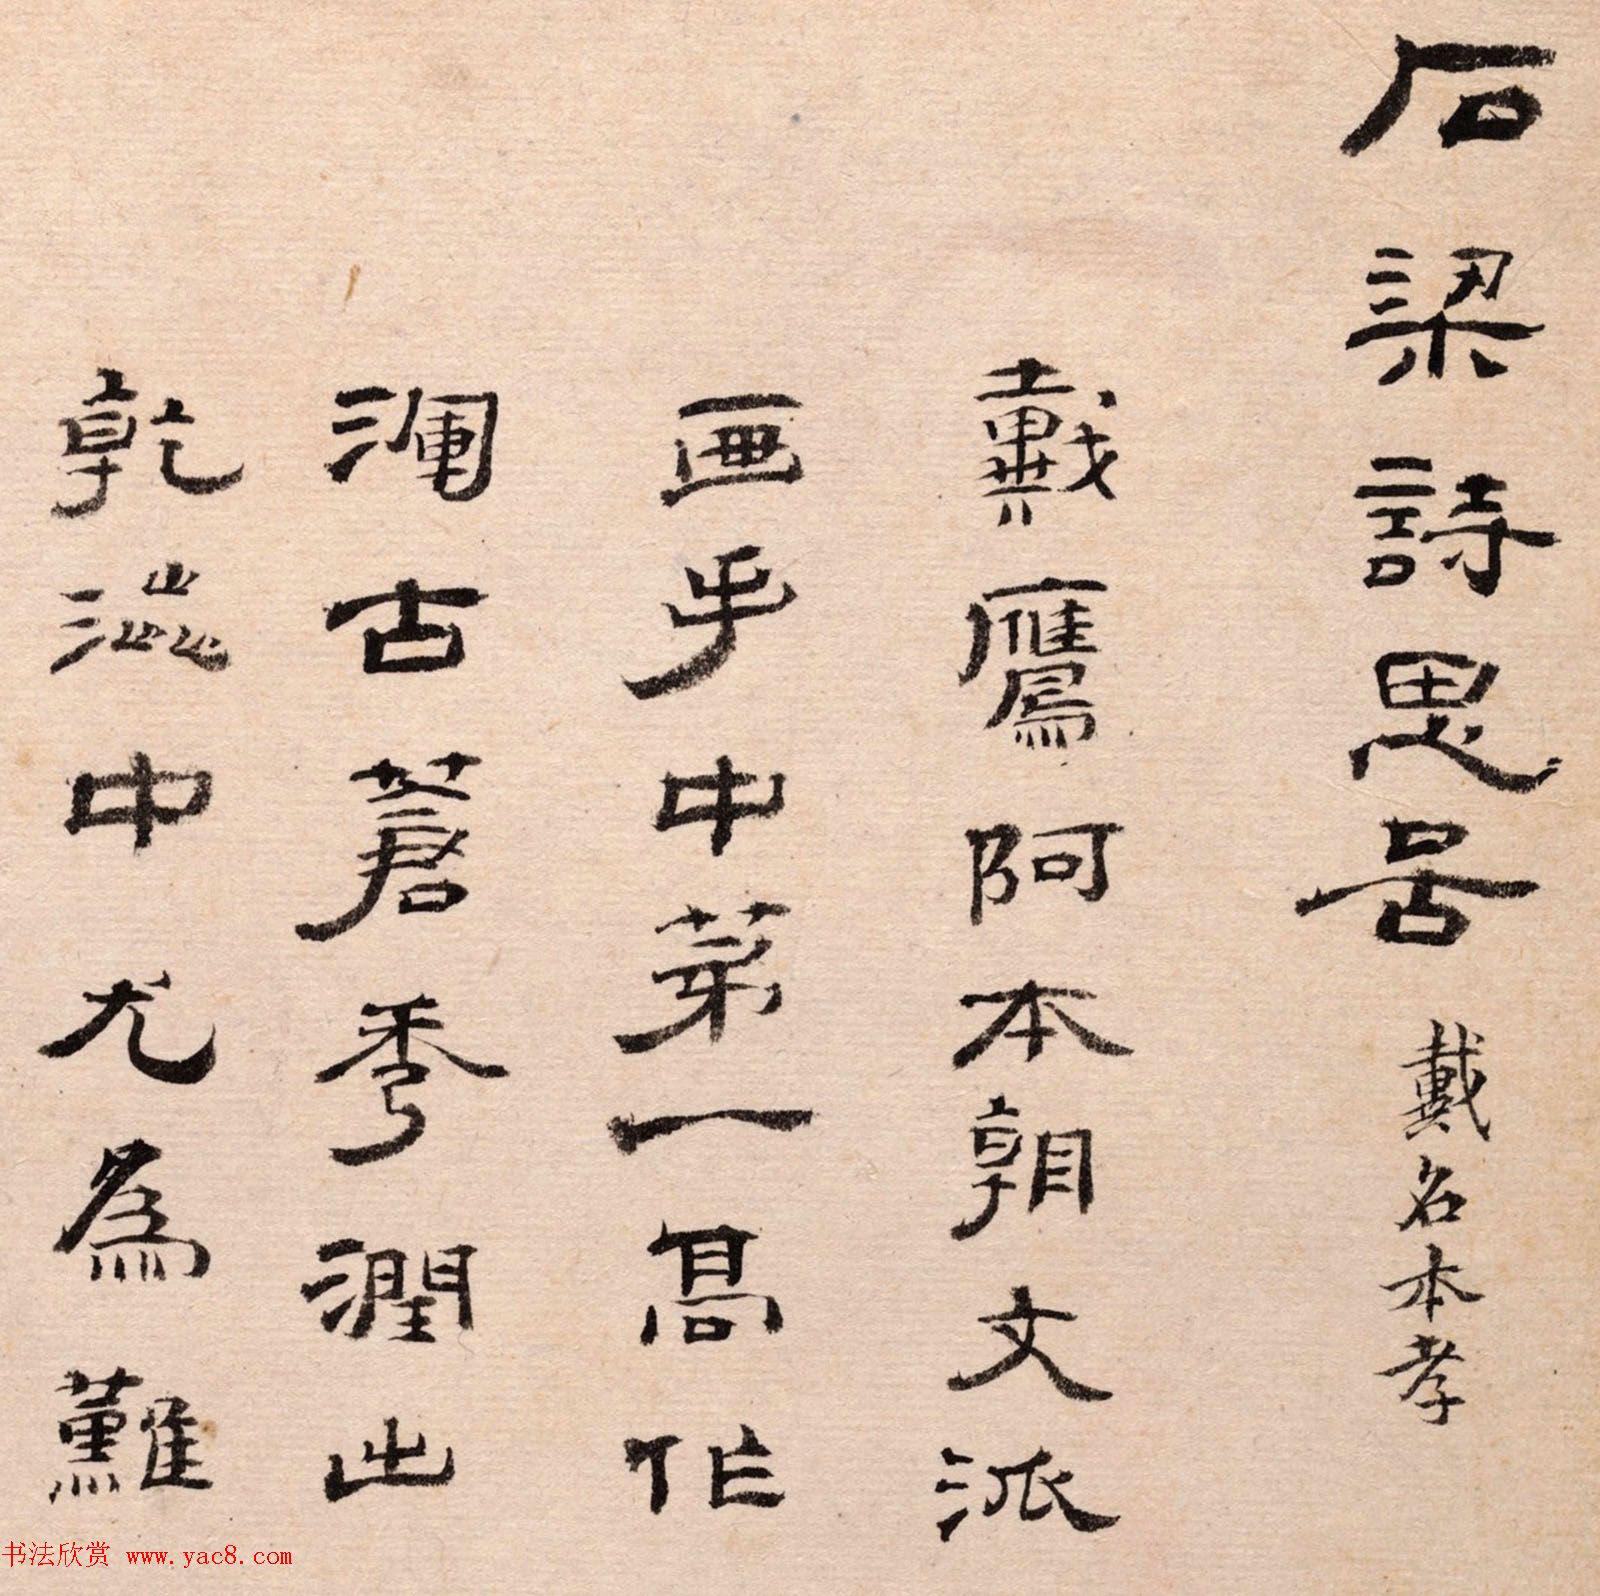 石梁詩思啚 戴名本孝
戴鷹阿本朝文派
画手中苐一高作
渾古蒼秀潤出
乾澁中尤為難
书法欣赏 www.yac8.com